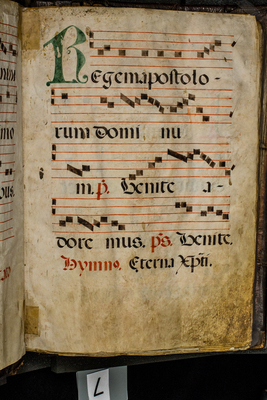 Regem apostolo-
rum domi nu
m. p. Venite a-
dore mus. ps. Venite.
Hymno. Eterna Xpti.
L